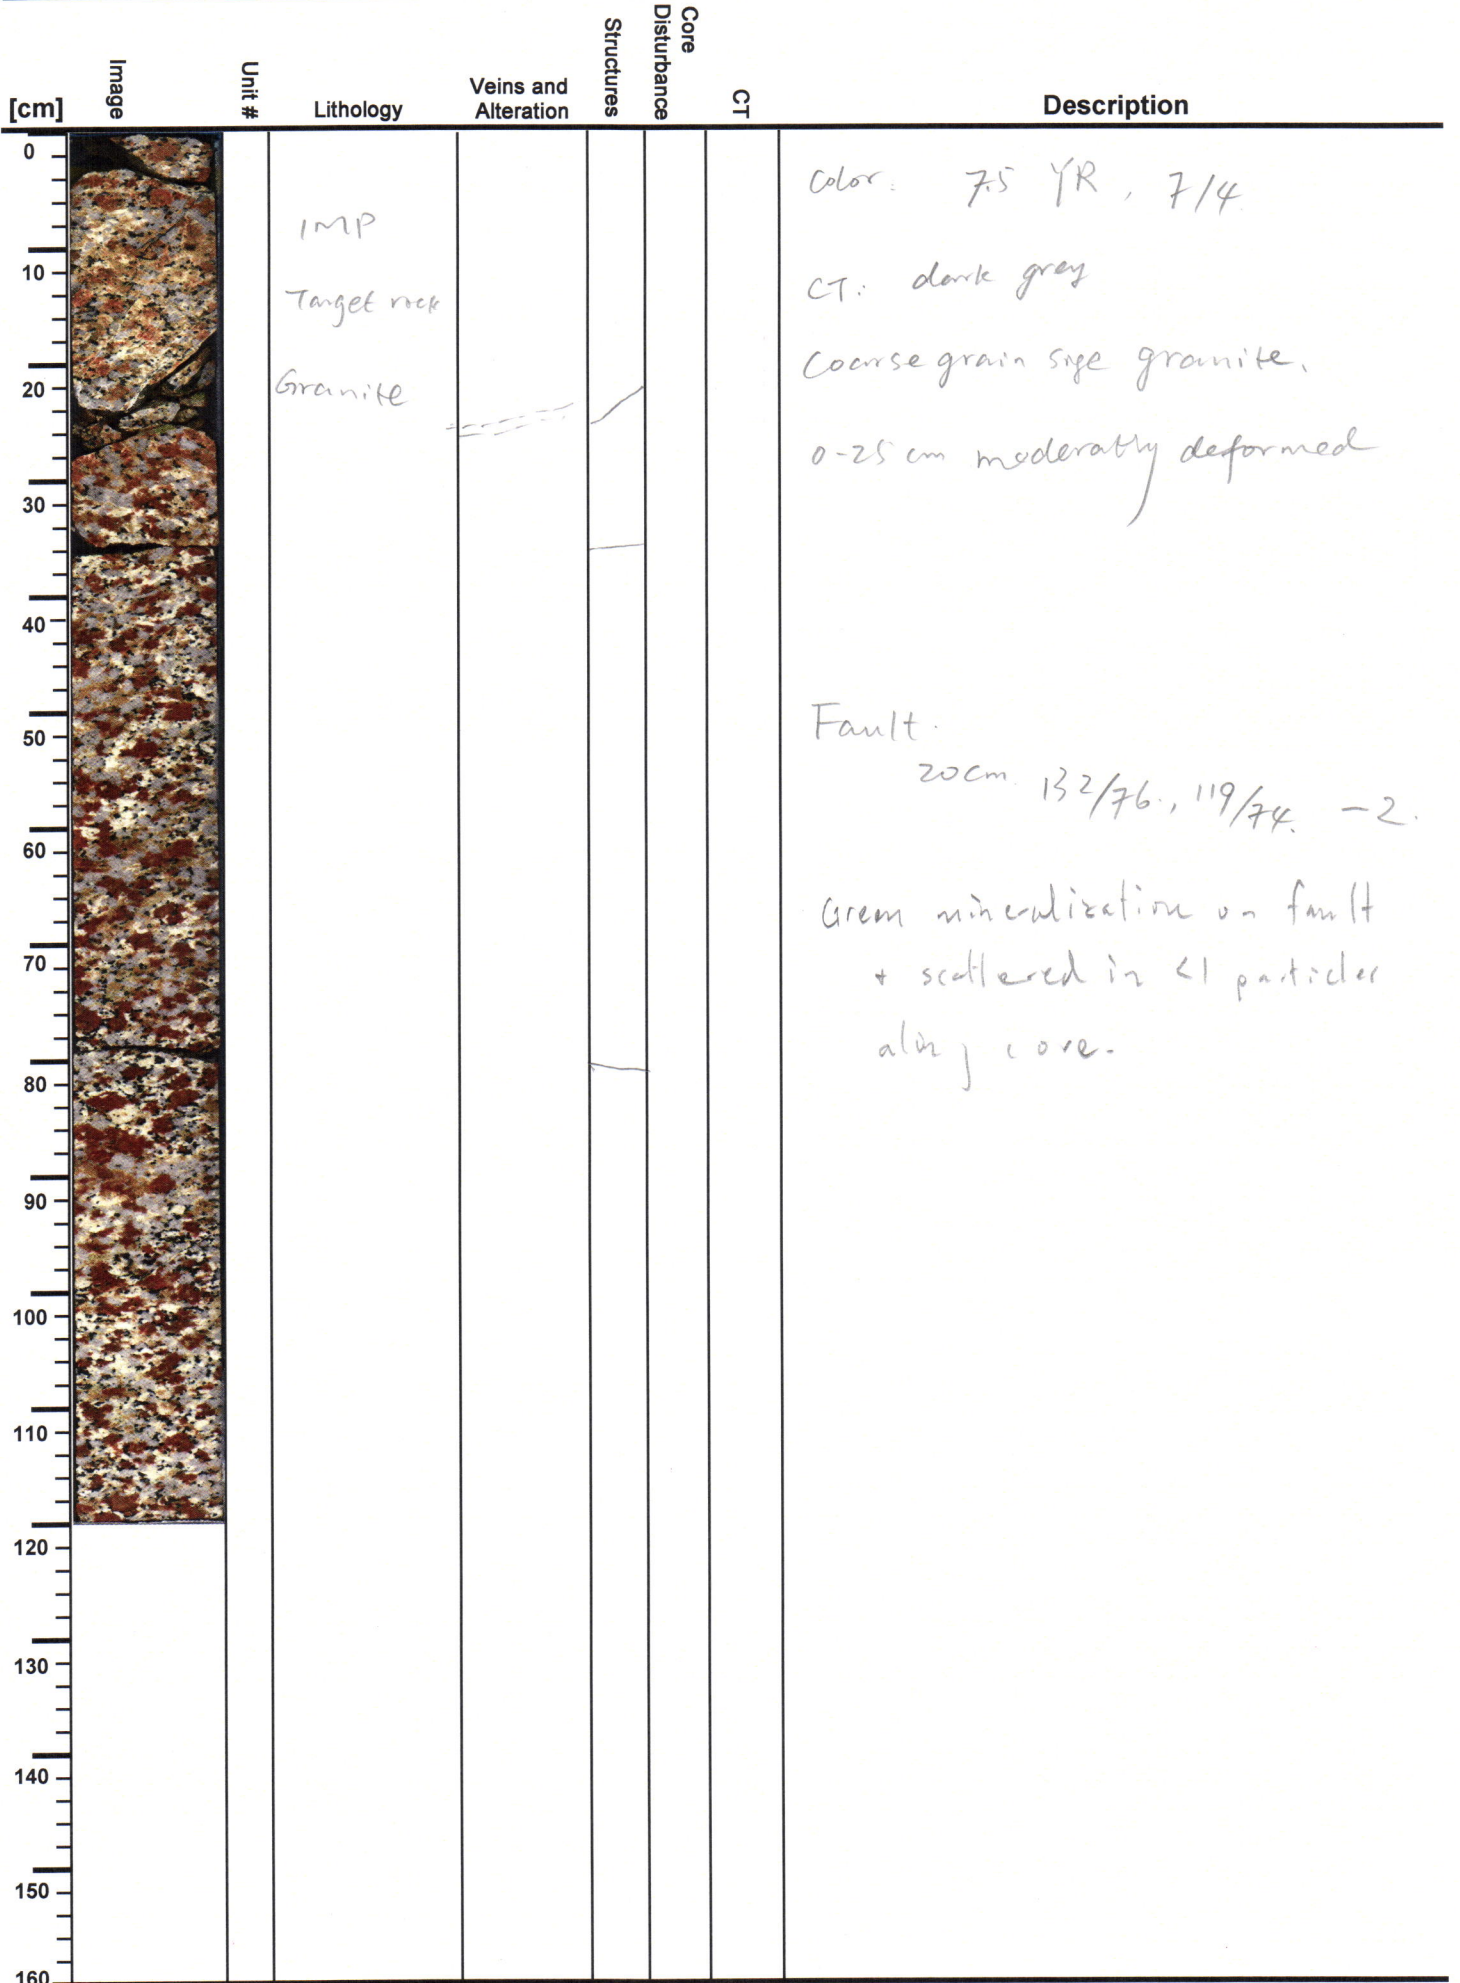 [cm]
Image
Unit #
Lithology
Veins and
Alteration
Structures
Core
Disturbance
CT
Description
0
10
20
30
40
50
60
70
80
90
100
110
120
130
140
150
160
IMP
Target rock
Granite
Color: 7.5 YR, 7/4
CT: dark grey
Coarse grain size granite.
0-25 cm moderatly deformed
Fault.
20cm 132/76., 119/74. -2.
Green mineralization on fault
+ scattered in <1 particles
along core.